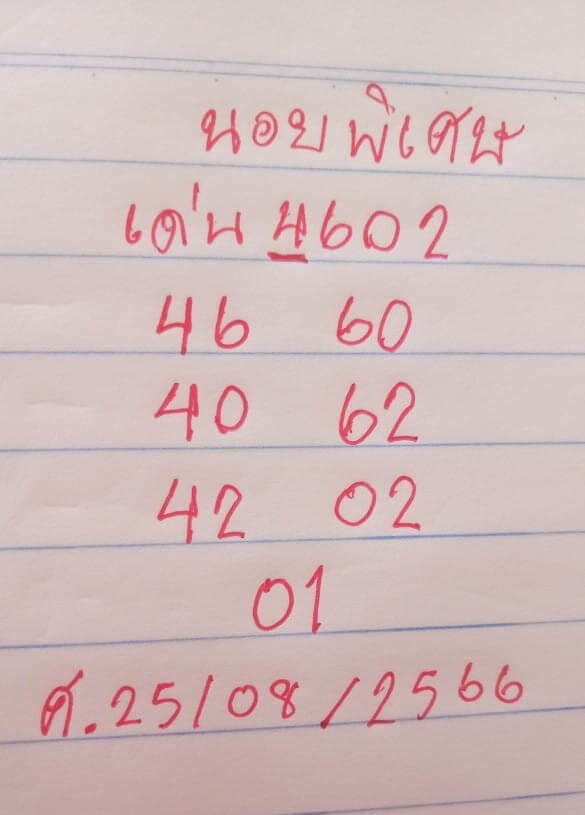 นอยพิเศษ
เด่น 4602
46 60
40 62
42 02
01
ศ.25/08/2566